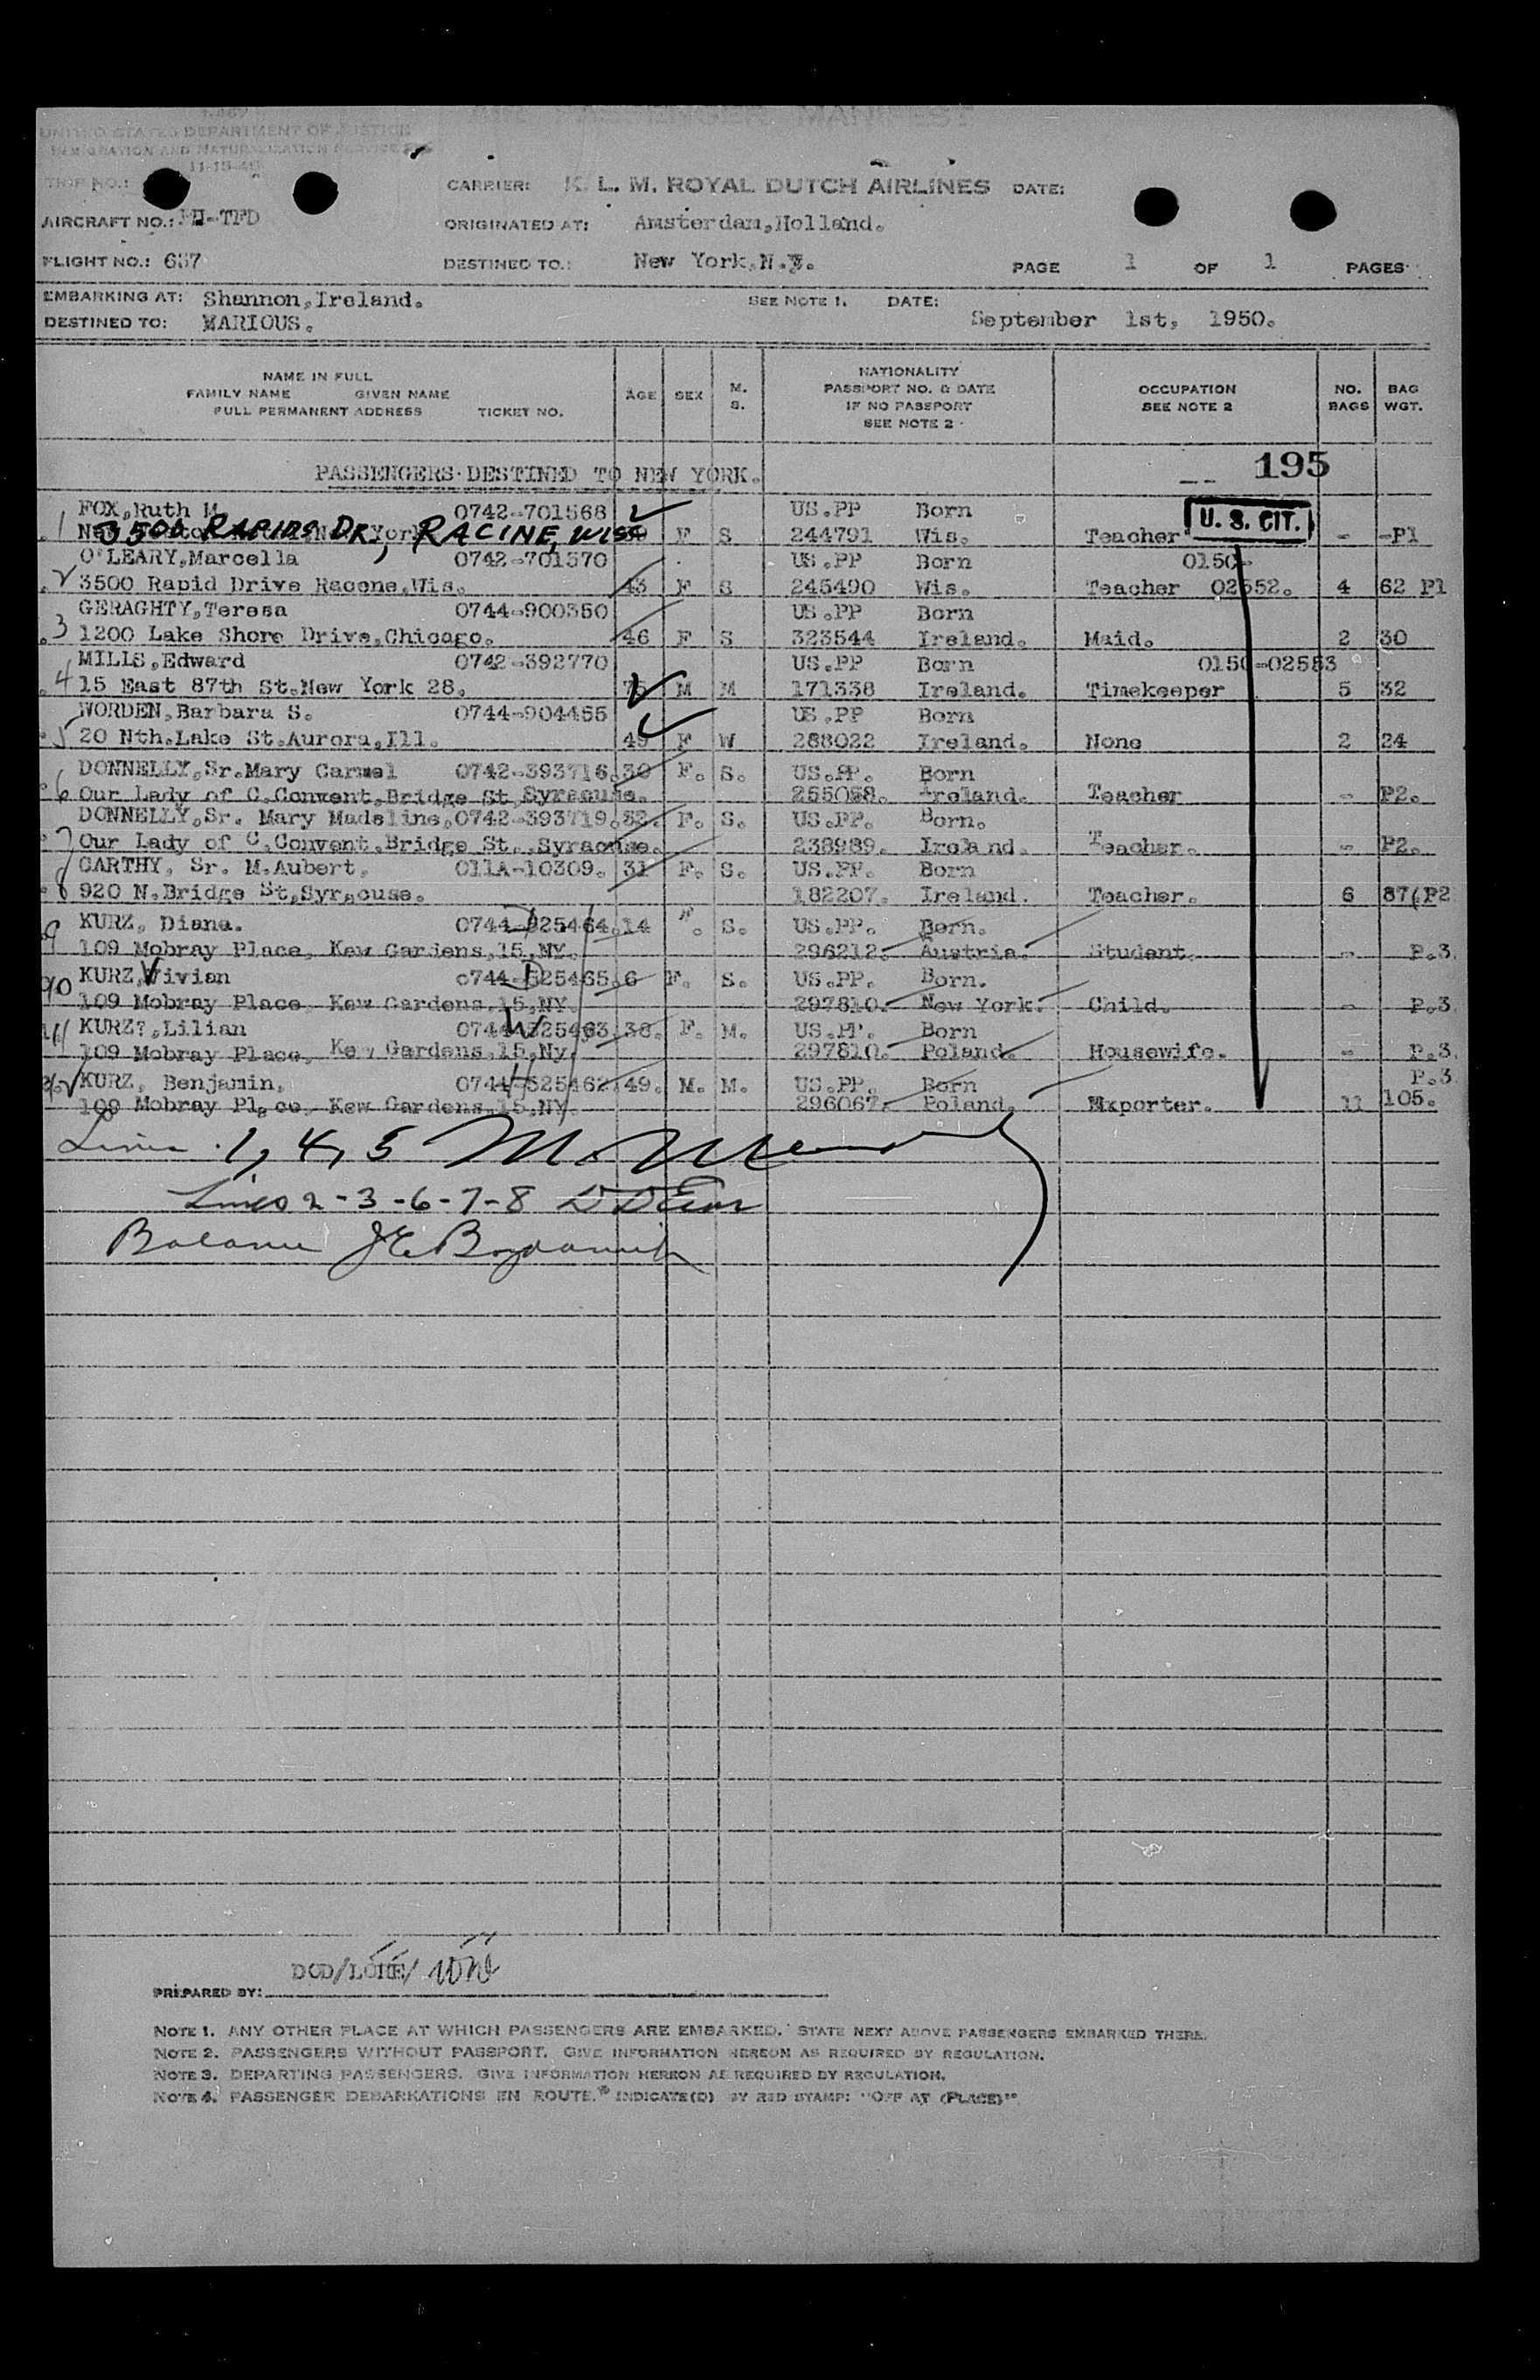 AIR PASSENGER MANIFEST
I-467
UNITED STATES DEPARTMENT OF JUSTICE
IMMIGRATION AND NATURALIZATION SERVICE
11-15-46
TRIP NO.: CARRIER: K. L. M. ROYAL DUTCH AIRLINES DATE:
AIRCRAFT NO.: PH-TFD ORIGINATED AT: Amsterdam,Holland.
FLIGHT NO.: 657 DESTINED TO.: New York,N.Y. PAGE 1 OF 1 PAGES
EMBARKING AT: Shannon,Ireland. SEE NOTE 1. DATE:
DESTINED TO: MARIOUS. September 1st, 1950.
NAME IN FULL
FAMILY NAME GIVEN NAME
FULL PERMANENT ADDRESS TICKET NO.
AGE SEX M. S.
NATIONALITY
PASSPORT NO. & DATE
IF NO PASSPORT
SEE NOTE 2
OCCUPATION
SEE NOTE 2
NO. BAGS
BAG WGT.
PASSENGERS DESTINED TO NEW YORK. 195
FOX,Ruth M. 0742-701568 US.PP Born U. S. CIT.
1 3500 RAPIDS DR, RACINE, WISC F S 244791 Wis. Teacher - -Pl
O'LEARY,Marcella 0742-701570 US.PP Born 0150-
2 3500 Rapid Drive Racone,Wis. 43 F S 245490 Wis. Teacher 02552. 4 62 Pl
GERAGHTY,Teresa 0744-900350 US.PP Born
3 1200 Lake Shore Drive,Chicago. 46 F S 323544 Ireland. Maid. 2 30
MILLS,Edward 0742-392770 US.PP Born 0150-02553
4 15 East 87th St.New York 28. 75 M M 171338 Ireland. Timekeeper 5 32
WORDEN,Barbara S. 0744-904455 US.PP Born
5 20 Nth.Lake St.Aurora,Ill. 49 F W 288022 Ireland. None 2 24
DONNELLY,Sr.Mary Carmel 0742-393716.30 F. S. US.PP. Born
6 Our Lady of C.Convent,Bridge St,Syracuse. 255058. Ireland. Teacher - P2.
DONNELLY,Sr. Mary Madeline,0742-393719.32. F. S. US.PP. Born.
7 Our Lady of C.Convent,Bridge St.,Syracuse. 238989. Ireland. Teacher. - P2.
CARTHY, Sr. M.Aubert, 011A-10309. 31 F. S. US.PP. Born
8 920 N.Bridge St,Syracuse. 182207. Ireland. Teacher. 6 87(P2
KURZ, Diana. 0744-325464.14 F. S. US.PP. Born.
9 109 Mobray Place, Kew Gardens,15,NY. 296212. Austria. Student. - P.3
KURZ,Vivian 0744-325465.6 F. S. US.PP. Born.
10 109 Mobray Place Kew Gardens,15,NY 297810. New York. Child. - P.3
KURZ?,Lilian 0744-325463.38. F. M. US.PP. Born
11 109 Mobray Place, Kew Gardens,15,Ny. 297810. Poland. Housewife. - P.3.
KURZ, Benjamin, 0744-325462 49. M. M. US.PP. Born P.3
109 Mobray Place, Kew Gardens,15,NY. 296067. Poland. Exporter. 11 105.
Lines 1, 4, 5
Lines 2-3-6-7-8
Balance
PREPARED BY: DCD/LOHE/
NOTE 1. ANY OTHER PLACE AT WHICH PASSENGERS ARE EMBARKED. STATE NEXT ABOVE PASSENGERS EMBARKED THERE.
NOTE 2. PASSENGERS WITHOUT PASSPORT. GIVE INFORMATION HEREON AS REQUIRED BY REGULATION.
NOTE 3. DEPARTING PASSENGERS. GIVE INFORMATION HEREON AS REQUIRED BY REGULATION.
NOTE 4. PASSENGER DEBARKATIONS EN ROUTE. INDICATE(D) BY RED STAMP: "OFF AT (PLACE)"